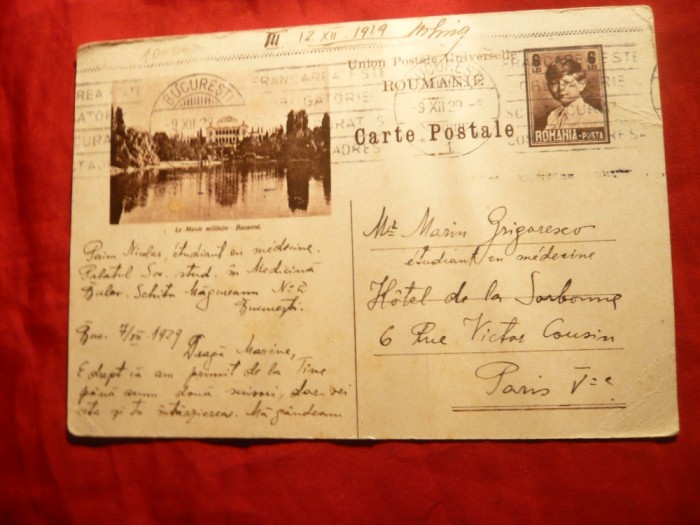 III 12 XII 1929
Union Postale Universelle
ROUMANIE
Carte Postale
6 LEI 6 LEI
ROMANIA-POSTA
BUCUREŞTI
9 XII 29
FRANCAREA ESTE
OBLIGATORIE
9 XII 29
1
Le Musée militaire - Bucarest.
Paim Nicolae, étudiant en médecine.
Palatul Soc. stud. în Medicină
Bular. Schitu Măgureanu No 2
Bucureşti.
Buc. 7/XII 1929
Dragă Marine,
E drept că am primit de la Tine
până acum două scrisori, dar vei
ierta şi tu întârzierea. Mă gândeam
Mr Marin Grigoresco
étudiant en médecine
Hôtel de la Sorbonne
6 Rue Victor Cousin
Paris Ve